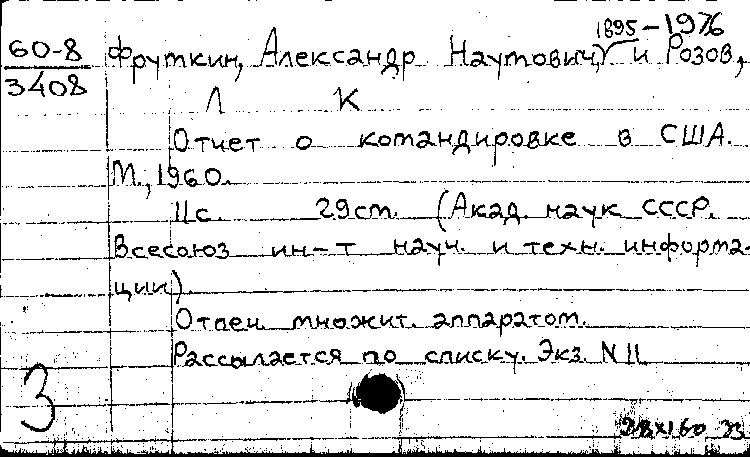 1895-1976
60-8 Фруткин, Александр Наумович, и Розов,
3408
Л К
Отчет о командировке в США.
М., 1960.
11с. 29ст. (Акад. наук СССР.
Всесоюз ин-т науч. и техн. информа-
ции).
Отпеч. множит. аппаратом.
Рассылается по списку. Экз. N 11.
3
28х160